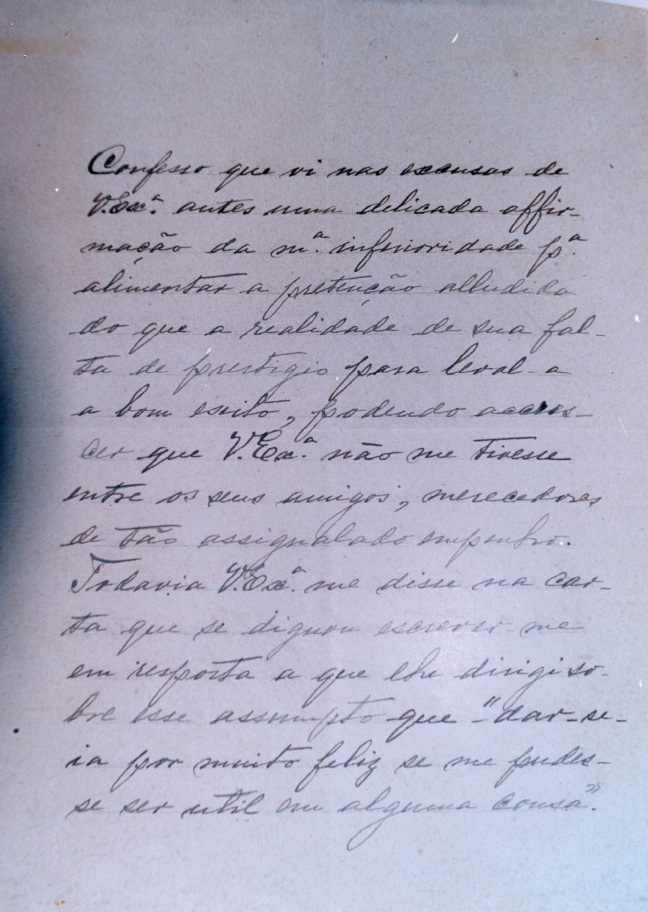 Confesso que vi nas excusas de
V.Exª. antes uma delicada affir-
mação da mª. inferioridade pª.
alimentar a pretenção alludida
do que a realidade de sua fal-
ta de prestigio para leval-a
a bom exito, podendo accres-
cer que V.Exª. não me tivesse
entre os seus amigos, merecedores
de tão assignalado empenho.
Todavia V.Exª. me disse na car-
ta que se dignou escrever-me
em resposta a que lhe dirigi so-
bre esse assumpto que "dar-se-
ia por muito feliz se me pudes-
se ser util em alguma cousa".